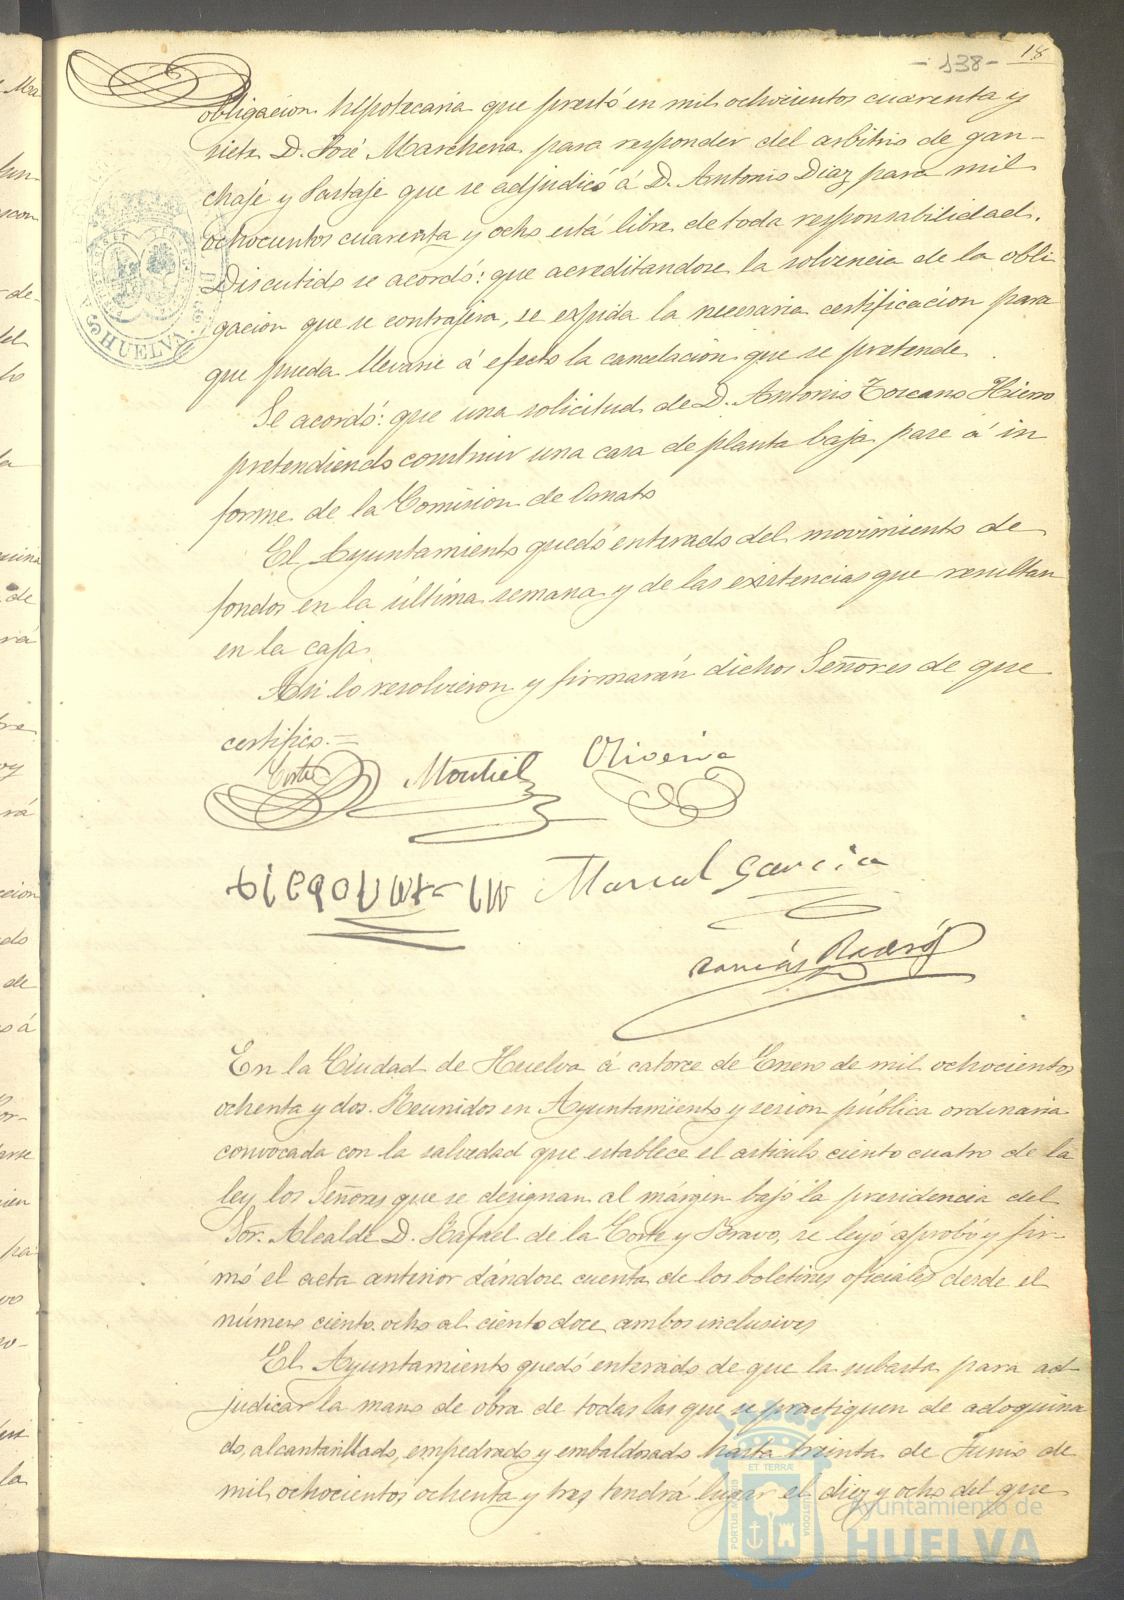 -138- 18
obligacion hipotecaria que prestó en mil ochocientos cuarenta y
siete D. José Marchena para responder del arbitrio de gan-
chaje y Pastaje que se adjudicó á D. Antonio Diaz para mil
ochocientos cuarenta y ocho está libre de toda responsabilidad.
Discutido se acordó: que acreditandose la solvencia de la obli
gacion que se contrajera, se expida la necesaria certificacion para
que pueda llevarse á efecto la cancelacion que se pretende.
Se acordó: que una solicitud de D. Antonio Toscano Hierro
pretendiendo construir una casa de planta baja pase á in
forme de la Comision de Ornato
El Ayuntamiento quedó enterado del movimiento de
fondos en la última semana y de las existencias que resultan
en la caja.
Asi lo resolvieron y firmarán dichos Señores de que
certifico.=
Corte Montiel Oliveira
Marcal Garcia
En la Ciudad de Huelva á catorce de Enero de mil ochocientos
ochenta y dos. Reunidos en Ayuntamiento y sesion pública ordinaria
convocada con la salvedad que establece el articulo ciento cuatro de la
ley los Señores que se designan al márgin bajo la presidencia del
Sor. Alcalde D. Rafael de la Corte y Bravo, se leyó aprobó y fir-
mó el acta anterior dándose cuenta de los boletines oficiales desde el
número ciento ocho al ciento doce ambos inclusives
El Ayuntamiento quedó enterado de que la subasta para ad-
judicar la mano de obra de todas las que se practiquen de adoquina
do, alcantarillado, empedrado y embaldosado hasta treinta de Junio de
mil ochocientos ochenta y tres tendrá lugar el diez y ocho del que
HUELVA
PORTUS MARIS ET TERRÆ CUSTODIA
Ayuntamiento de
HUELVA